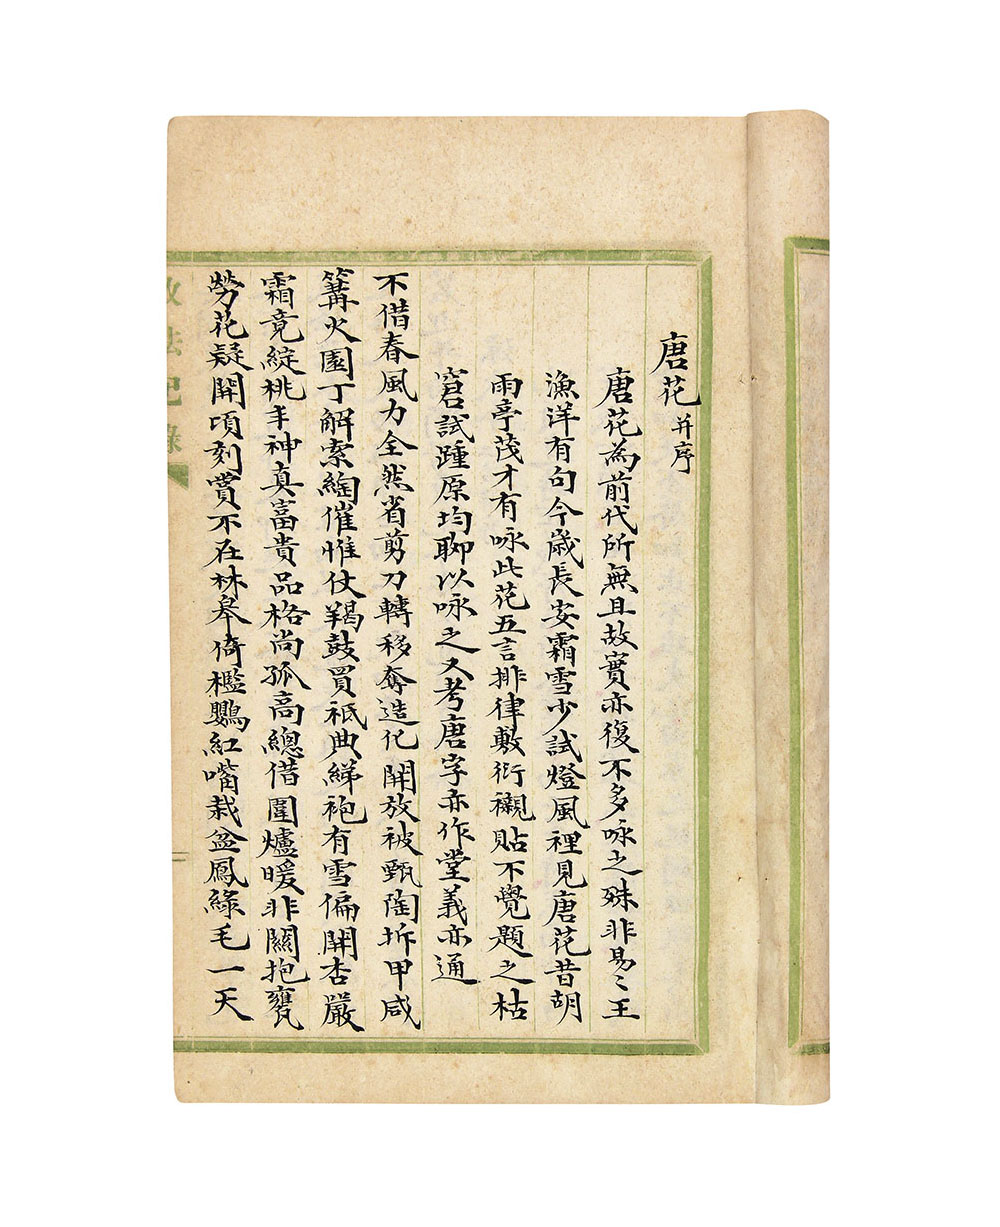 唐花 并序
唐花為前代所無且故實亦復不多咏之殊非易〻王
漁洋有句今歲長安霜雪少試燈風裡見唐花昔胡
雨亭茂才有咏此花五言排律敷衍襯貼不覺題之枯
窘試踵原均聊以咏之又考唐字亦作堂義亦通
不借春風力全然省剪刀轉移奪造化開放被甄陶拆甲咸
篝火園丁解索綯催惟仗羯鼓買祇典綈袍有雪偏開杏嚴
霜竟綻桃丰神真富貴品格尚孤高總借圍爐暖非關抱甕
勞花疑開頃刻賞不在林皋倚檻鸚紅嘴栽盆鳳綠毛一天